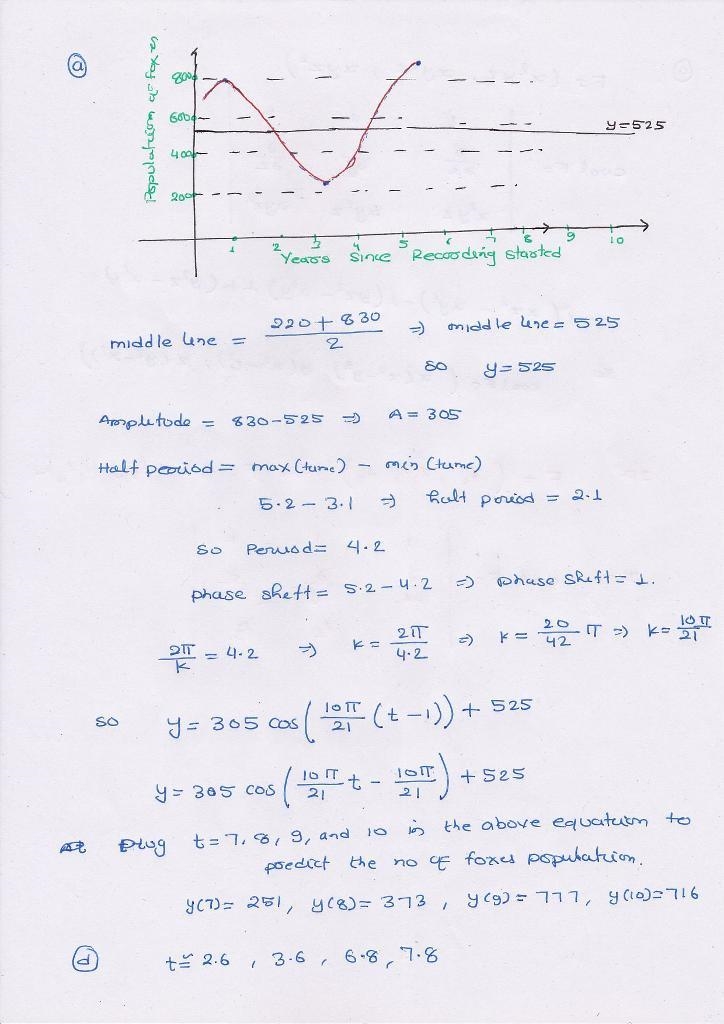 ⓐ
Population of foxes
800
600
y=525
400
200
1 2 3 4 5 6 7 8 9 10
Years Since Recording started
middle line = 220+830 / 2 ⇒ middle line = 525
so y=525
Amplitude = 830-525 ⇒ A = 305
Half period = max (time) - min (time)
5.2 - 3.1 ⇒ half period = 2.1
so Period = 4.2
phase shift = 5.2-4.2 ⇒ phase shift = 1.
2π/k = 4.2 ⇒ k = 2π/4.2 ⇒ k = 20/42 π ⇒ k = 10π/21
so y = 305 cos(10π/21 (t-1)) + 525
y = 305 cos(10π/21 t - 10π/21) + 525
plug t=7, 8, 9, and 10 in the above equation to
predict the no of foxes population.
y(7)= 251, y(8)= 373, y(9)= 777, y(10)=716
ⓓ t≅ 2.6, 3.6, 6.8, 7.8